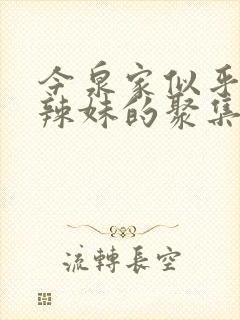 今泉家似乎
辣妹的聚集
流轉長空